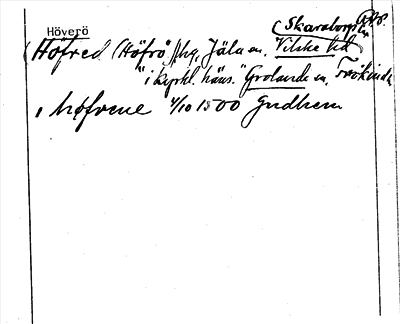 Höverö
(Skaraborgs län
(Höfred (Höfrö) hg, Jäla sn. Vilske hd
"i kyrkl. häns." Grolanda sn, Frökinds
i høfrene 4/10 1500 Gudhem